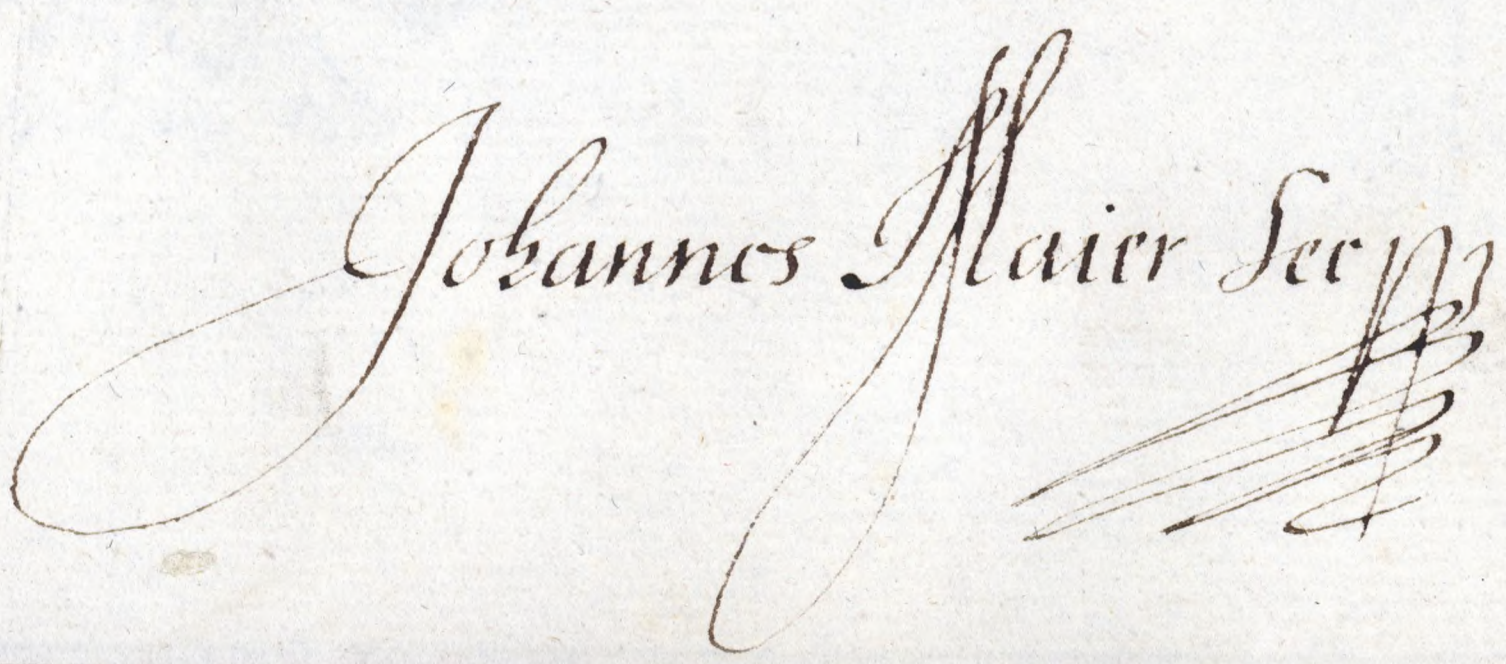 Johannes Maier Sec